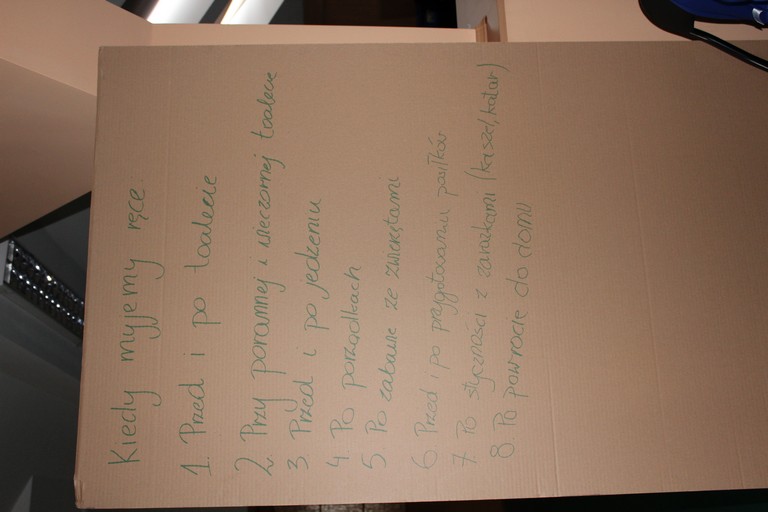 Kiedy myjemy ręce:
1. Przed i po toalecie
2. Przy porannej i wieczornej toalecie
3 Przed i po jedzeniu
4 Po porządkach
5 Po zabawie ze zwierzętami
6 Przed i po przygotowaniu posiłków
7. Po styczności z zarazkami (kaszel, katar)
8. Po powrocie do domu